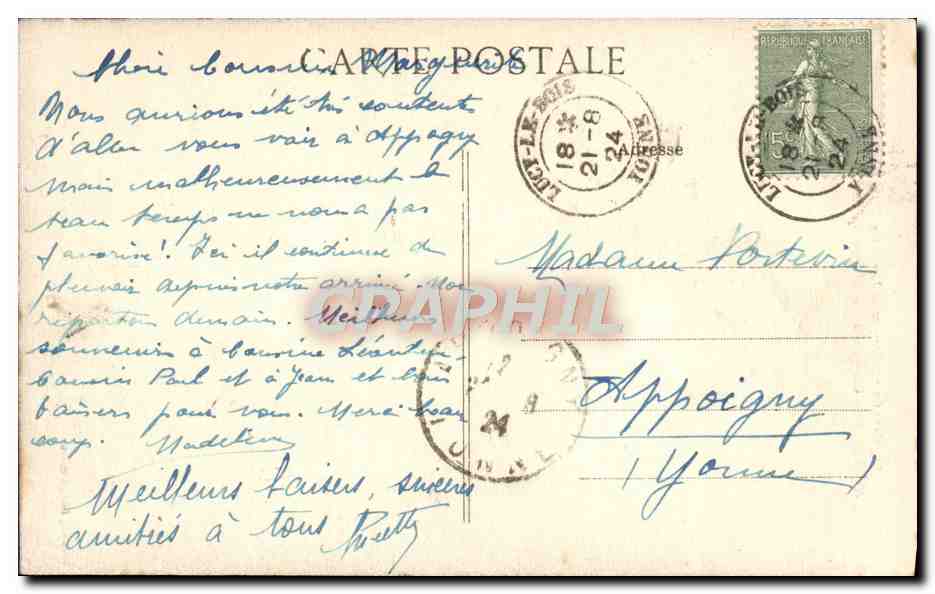 CARTE POSTALE
Chère Cousine Marguerite
Nous aurions été très contentes
d'aller vous voir à Appogny
mais malheureusement le
beau temps ne nous a pas
favorisé! Ici il continue de
pleuvoir depuis notre arrivée. Nous
repartons demain. Meilleurs
souvenirs à Cousine Léontine
Cousin Paul et à Jean et bons
baisers pour vous. Merci beau
coup. Madeleine
Meilleurs baisers, sincères
amitiés à tous
REPUBLIQUE FRANÇAISE
15
LUCY-LE-BOIS
18 *
21-8
24
YONNE
LUCY-LE-BOIS
18 *
21-8
24
YONNE
Adresse
Madame Potevin
Appoigny
(Yonne)
CARAPHIL
12
8
24